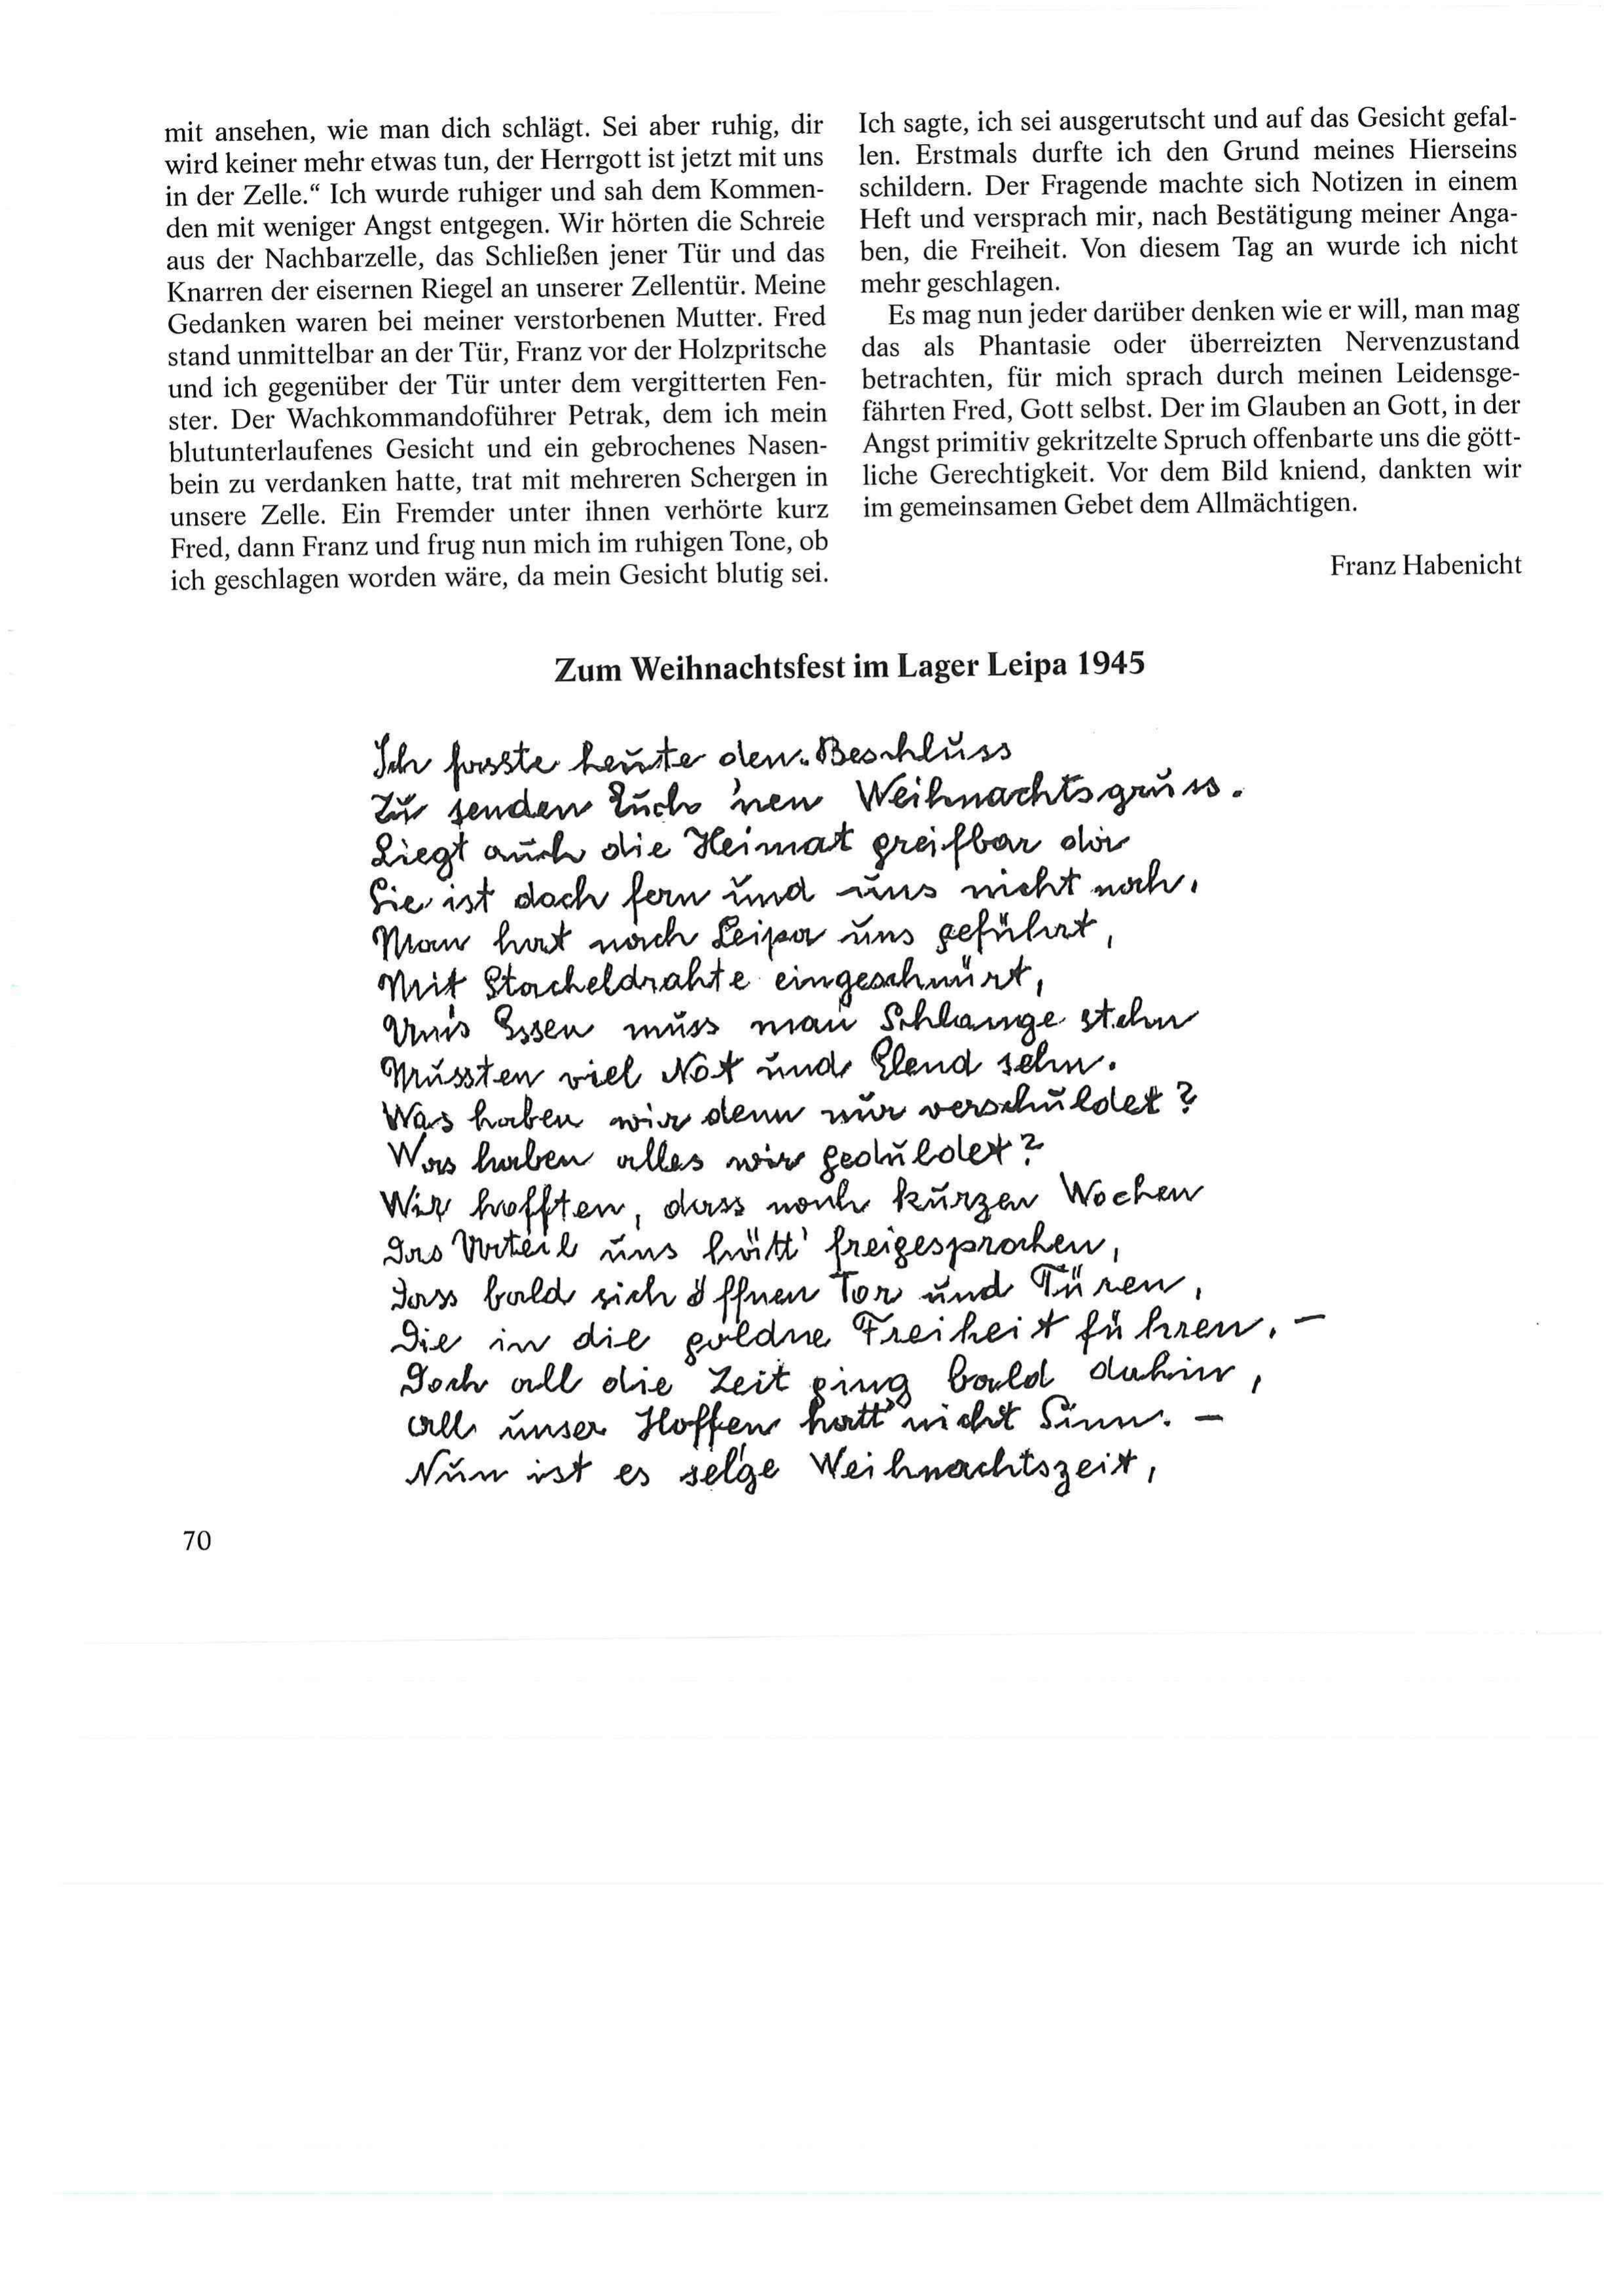 mit ansehen, wie man dich schlägt. Sei aber ruhig, dir
wird keiner mehr etwas tun, der Herrgott ist jetzt mit uns
in der Zelle.“ Ich wurde ruhiger und sah dem Kommen-
den mit weniger Angst entgegen. Wir hörten die Schreie
aus der Nachbarzelle, das Schließen jener Tür und das
Knarren der eisernen Riegel an unserer Zellentür. Meine
Gedanken waren bei meiner verstorbenen Mutter. Fred
stand unmittelbar an der Tür, Franz vor der Holzpritsche
und ich gegenüber der Tür unter dem vergitterten Fen-
ster. Der Wachkommandoführer Petrak, dem ich mein
blutunterlaufenes Gesicht und ein gebrochenes Nasen-
bein zu verdanken hatte, trat mit mehreren Schergen in
unsere Zelle. Ein Fremder unter ihnen verhörte kurz
Fred, dann Franz und frug nun mich im ruhigen Tone, ob
ich geschlagen worden wäre, da mein Gesicht blutig sei.
Ich sagte, ich sei ausgerutscht und auf das Gesicht gefal-
len. Erstmals durfte ich den Grund meines Hierseins
schildern. Der Fragende machte sich Notizen in einem
Heft und versprach mir, nach Bestätigung meiner Anga-
ben, die Freiheit. Von diesem Tag an wurde ich nicht
mehr geschlagen.
Es mag nun jeder darüber denken wie er will, man mag
das als Phantasie oder überreizten Nervenzustand
betrachten, für mich sprach durch meinen Leidensge-
fährten Fred, Gott selbst. Der im Glauben an Gott, in der
Angst primitiv gekritzelte Spruch offenbarte uns die gött-
liche Gerechtigkeit. Vor dem Bild kniend, dankten wir
im gemeinsamen Gebet dem Allmächtigen.
Franz Habenicht
Zum Weihnachtsfest im Lager Leipa 1945
Ich fasste heute den Beschluss
Zu senden Euch 'nen Weihnachtsgruss.
Liegt auch die Heimat greifbar da
Sie ist doch fern und uns nicht nah.
Man hat nach Leipa uns geführt,
Mit Stacheldrahte eingeschnürt,
Um's Essen muss man Schlange stehn
Mussten viel Not und Elend sehn.
Was haben wir denn nur verschuldet?
Was haben alles wir geduldet?
Wir hofften, dass nach kurzen Wochen
Das Urteil uns hätt' freigesprochen,
Dass bald sich öffnen Tor und Türen,
Die in die goldne Freiheit führen. –
Doch all die Zeit ging bald dahin,
all unser Hoffen hatt' nicht Sinn. –
Nun ist es sel'ge Weihnachtszeit,
70